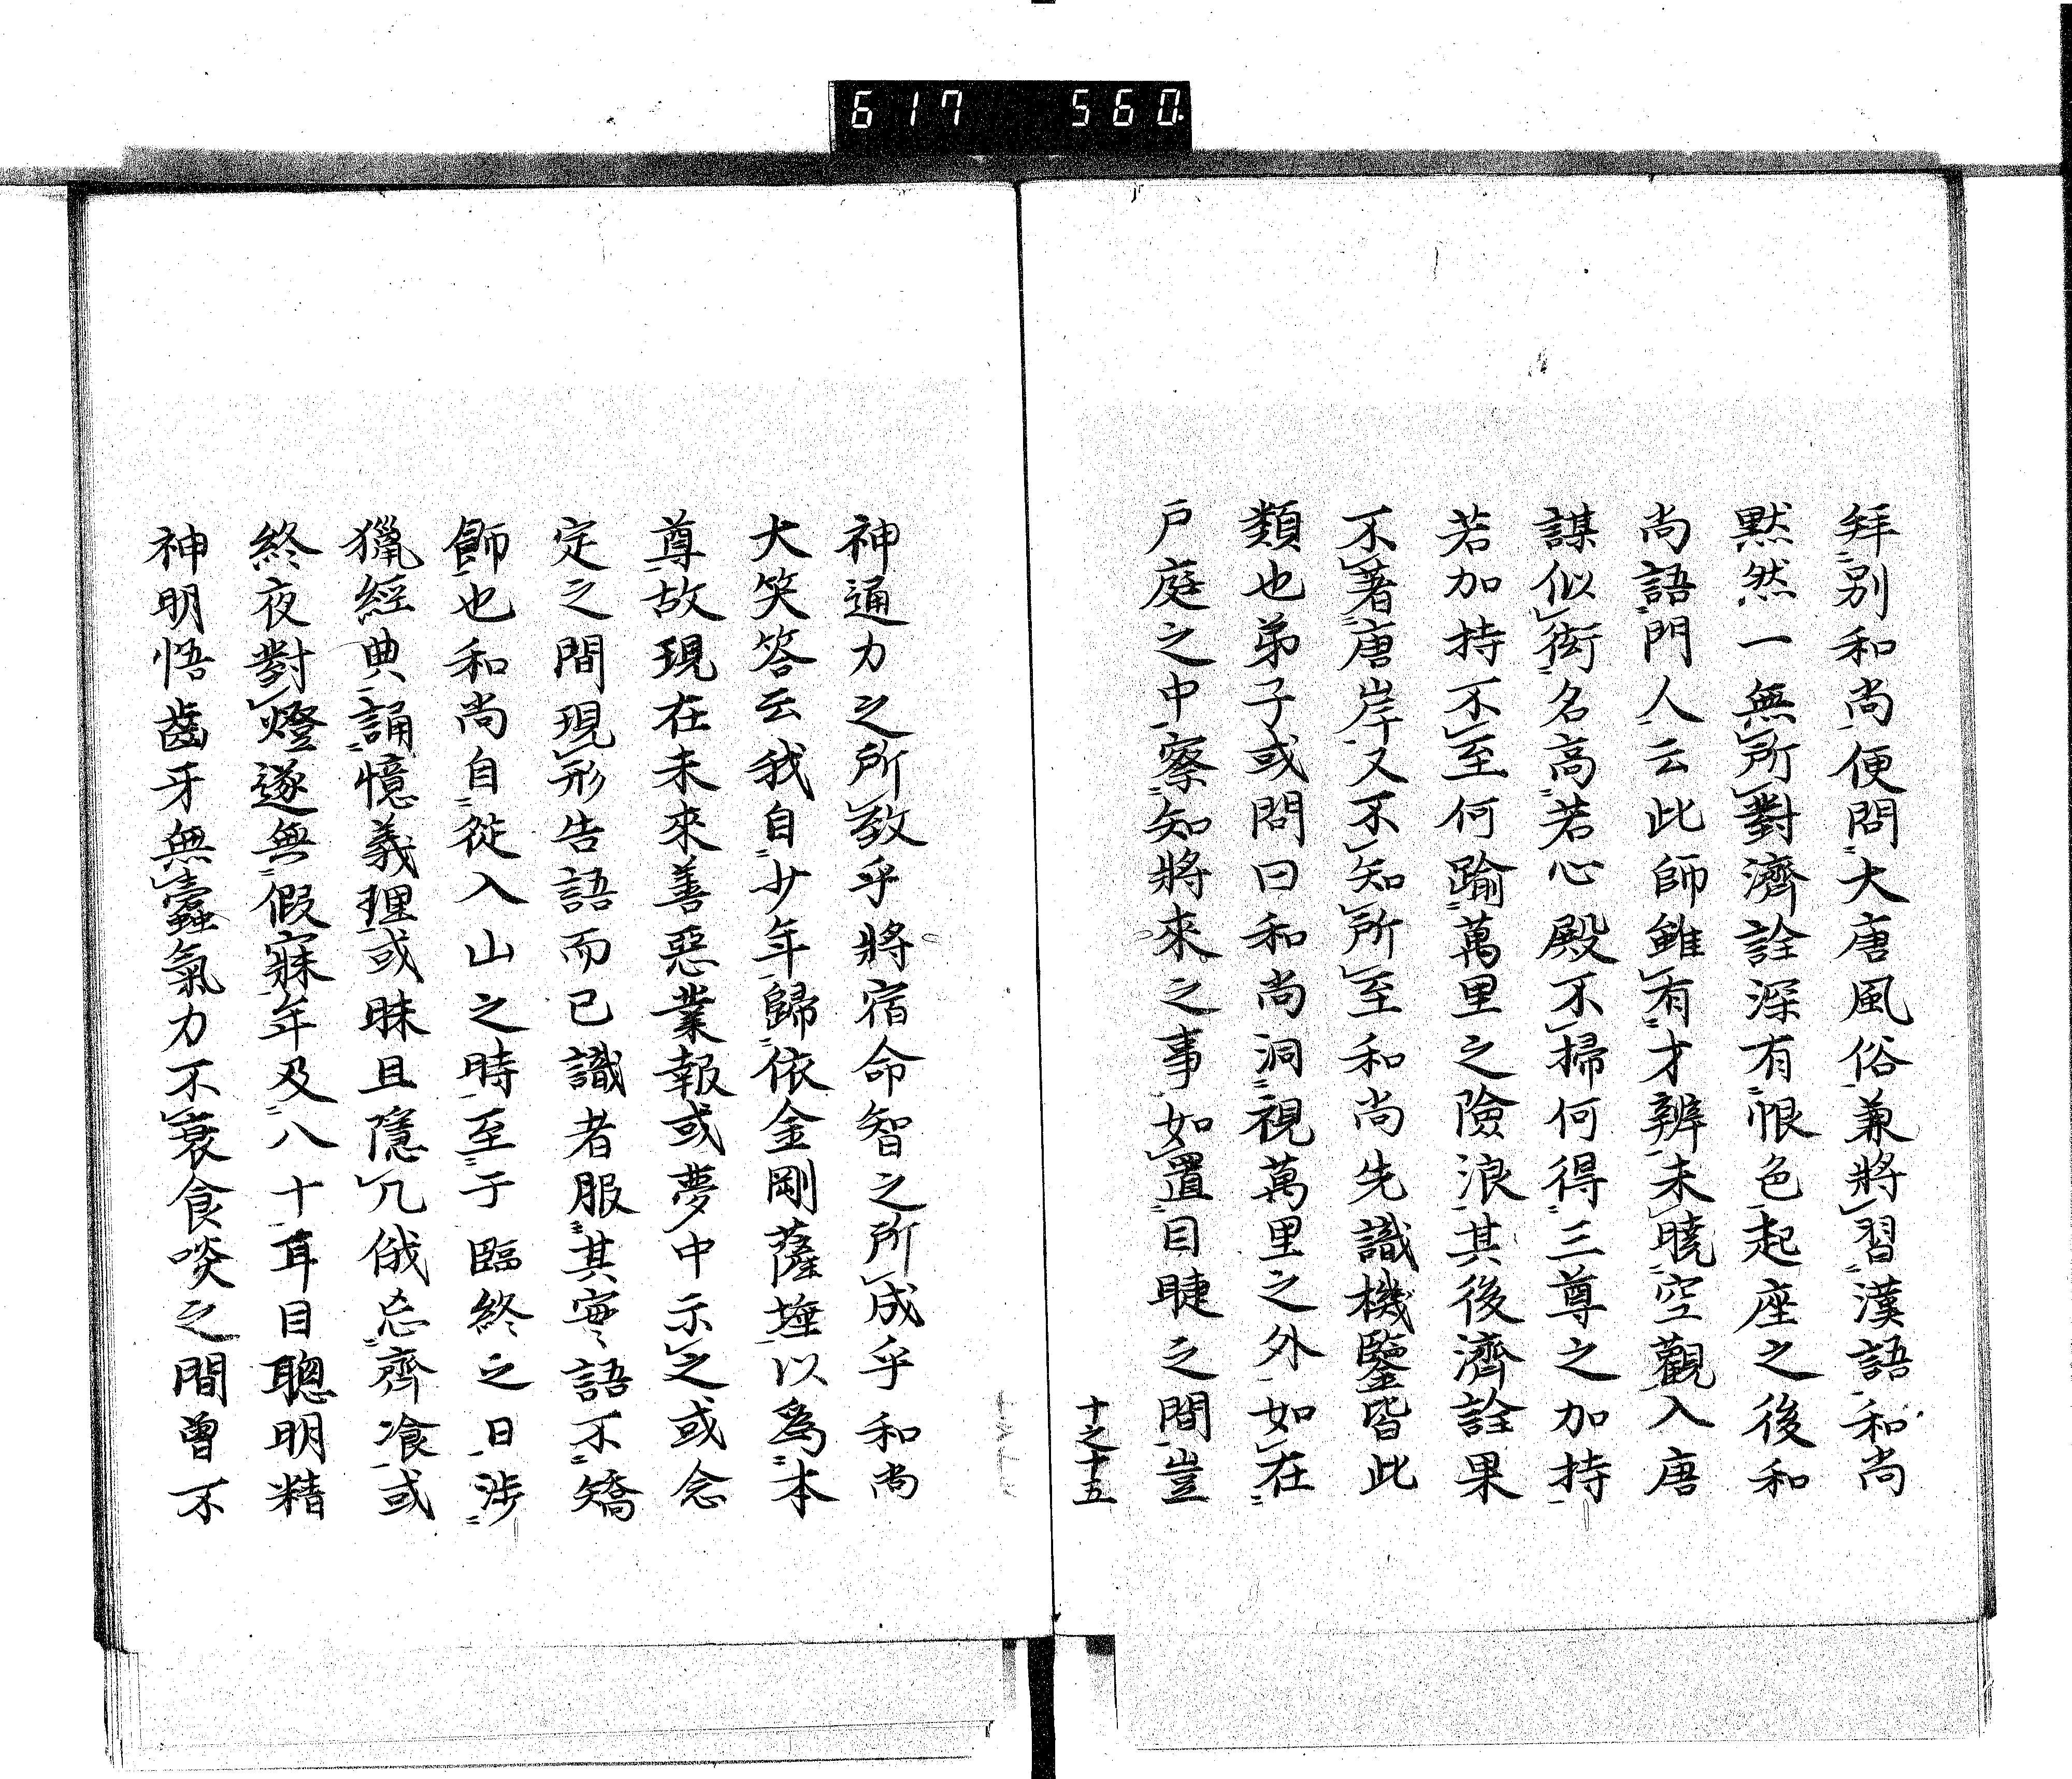 617 560
拜別和尚便問大唐風俗兼將習漢語和尚
默然一無所對濟詮深有恨色起座之後和
尚語門人云此師雖有才辨未曉空觀入唐
謀似衒名高若心殿不掃何得三尊之加持
若加持不至何踰萬里之險浪其後濟詮果
不著唐岸又不知所至和尚先識機鑒皆此
類也弟子或問曰和尚洞視萬里之外如在
戶庭之中察知將來之事如置目睫之間豈
十之十五
神通力之所致乎將宿命智之所成乎和尚
大笑答云我自少年歸依金剛薩埵以為本
尊故現在未來善惡業報或夢中示之或念
定之間現形告語而已識者服其實語不矯
餝也和尚自從入山之時至于臨終之日涉
獵經典誦憶義理或昧旦隱几俄忘齊飡或
終夜對燈遂無假寐年及八十耳目聰明精
神明悟齒牙無蠹氣力不衰食啖之間曾不